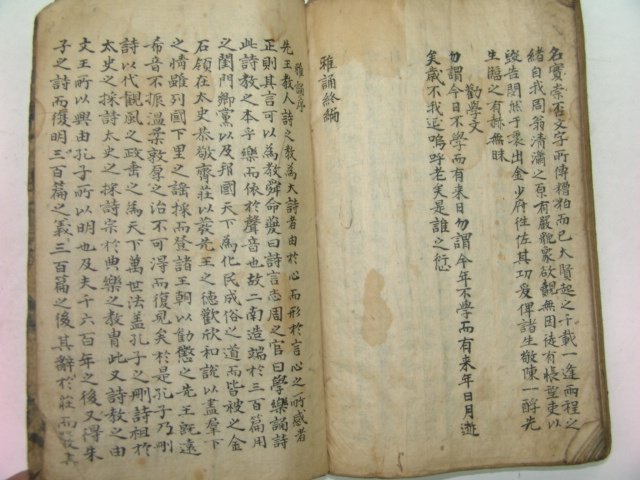 名實幸否文字所傳糟粕而已大賢起之千載一逢兩程之
緒自我周翁清瀟之原有嚴觀豪欲覿無因徒有悵以
告然于裏出金少府往佐其功爰俾諸生敬陳一酹先
生臨之有赫無昧
勸學文
勿謂今日不學而有来日勿謂今年不學而有来年日月逝
矣歲不我延嗚呼老矣是誰之愆
雅誦終編
雅誦序
先王教人詩之教為大詩者由於心而形於言心之所感者
正則其言可以為教舜命夔曰詩言志周之官曰學樂誦詩
此詩教之本乎樂而依於聲音也故二南造端於三百篇用
之閨門鄉黨以及邦國天下為化民成俗之道而皆被之金
石領在太史恭敬齊莊以發先王之德歡欣和說以盡羣下
之情雖列國下里之謠採而登諸王朝以勸懲之先王既遠
希音不振溫柔敦厚之治不可得而復見矣於是孔子乃刪
詩以代觀風之政而為天下萬世法盖孔子之刪詩祖於
太史之採詩太史之採詩宗於典樂之教胄此又詩教之由
文王所以興由孔子所以明也及夫千六百年之後又得朱
子之詩而復明三百篇之義三百篇之後其辭於莊而其